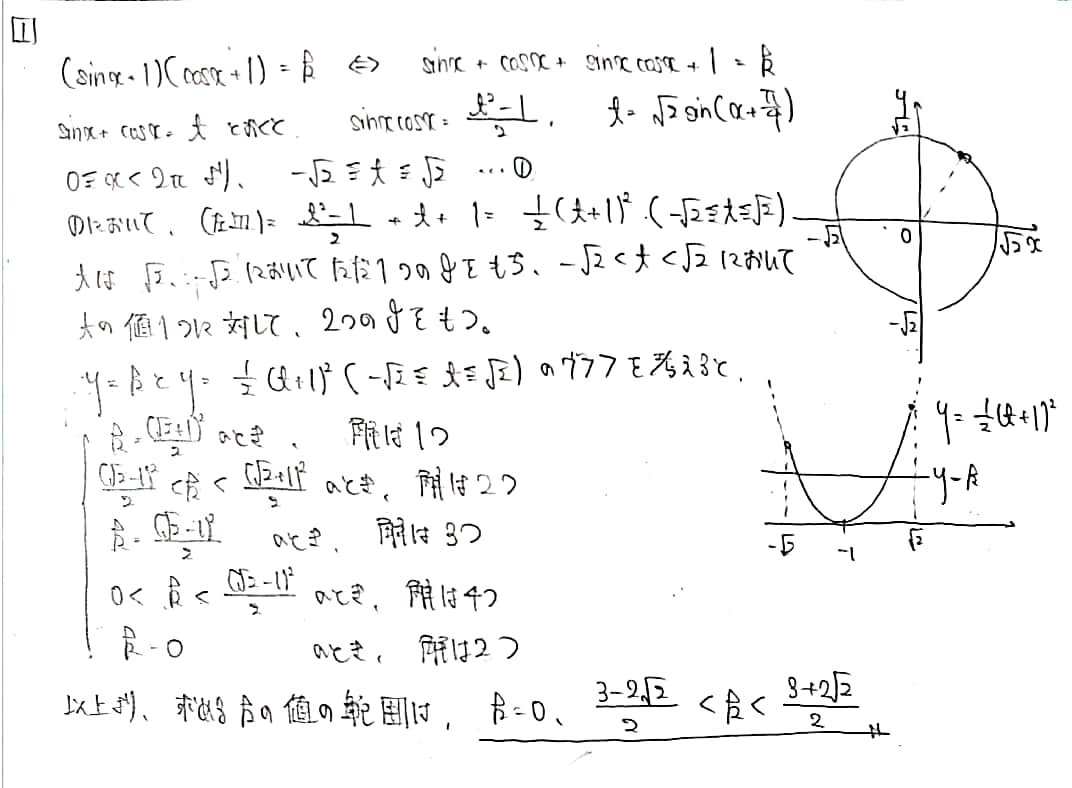 1
(sinx+1)(cosx+1) = k ⇔ sinx + cosx + sinx cosx + 1 = k
sinx + cosx = t とおくと、 sinx cosx = (t²-1)/2 , t = √2 sin(x+π/4)
0≦x<2π より、 -√2 ≦ t ≦ √2 … ①
①において、(左辺) = (t²-1)/2 + t + 1 = 1/2 (t+1)² (-√2≦t≦√2)
tは √2, -√2 においてただ1つのxをもち、-√2<t<√2 において
tの値1つに対して、2つのxをもつ。
y=k と y= 1/2 (t+1)² (-√2 ≦ t ≦ √2) のグラフを考えると、
k = (√2+1)²/2 のとき、 解は1つ
(√2-1)²/2 < k < (√2+1)²/2 のとき、解は2つ
k = (√2-1)²/2 のとき、 解は3つ
0 < k < (√2-1)²/2 のとき、解は4つ
k=0 のとき、 解は2つ
以上より、求めるkの値の範囲は、 k=0、 (3-2√2)/2 < k < (3+2√2)/2
y
√2
-√2
0
√2
x
-√2
y = 1/2 (t+1)²
y=k
-√2
-1
√2